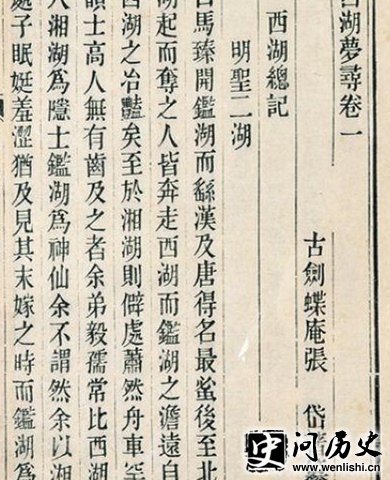 西湖夢尋卷一
古劍蝶庵張 岱
西湖總記
明聖二湖
自馬臻開鑑湖而繇漢及唐得名最蚤後至北
湖起而奪之人皆奔走西湖而鑑湖之澹遠自
西湖之冶豔矣至於湘湖則僻處蕭然舟車罕
韻士高人無有齒及之者余弟毅孺常比西湖
人湘湖爲隱士鑑湖爲神仙余不謂然余以湘
處子眠娗羞澀猶及見其末嫁之時而鑑湖爲
史问历史
www.wenlishi.cn